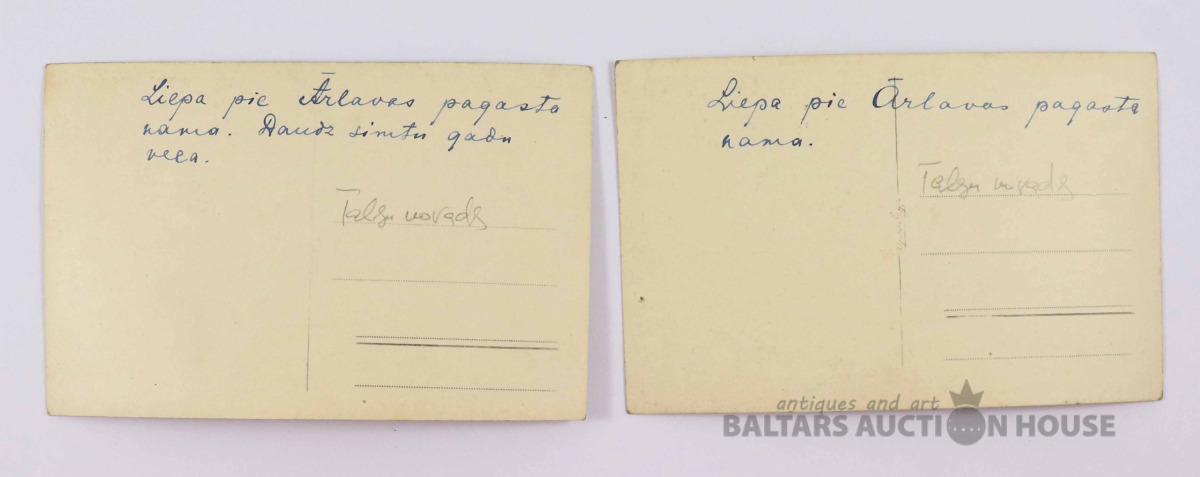 Liepa pie Ārlavas pagasta
nama. Daudz simtu gadu
veca.
Talsu novads
Liepa pie Ārlavas pagasta
nama.
Talsu novads
antiques and art
BALTARS AUCTION HOUSE